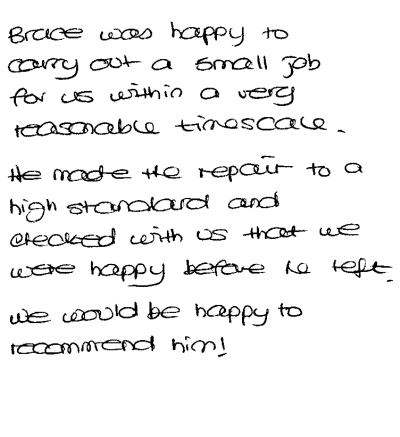 Brace was happy to
carry out a small job
for us within a very
reasonable timescale.
He made the repair to a
high standard and
checked with us that we
were happy before he left.
We would be happy to
recommend him!